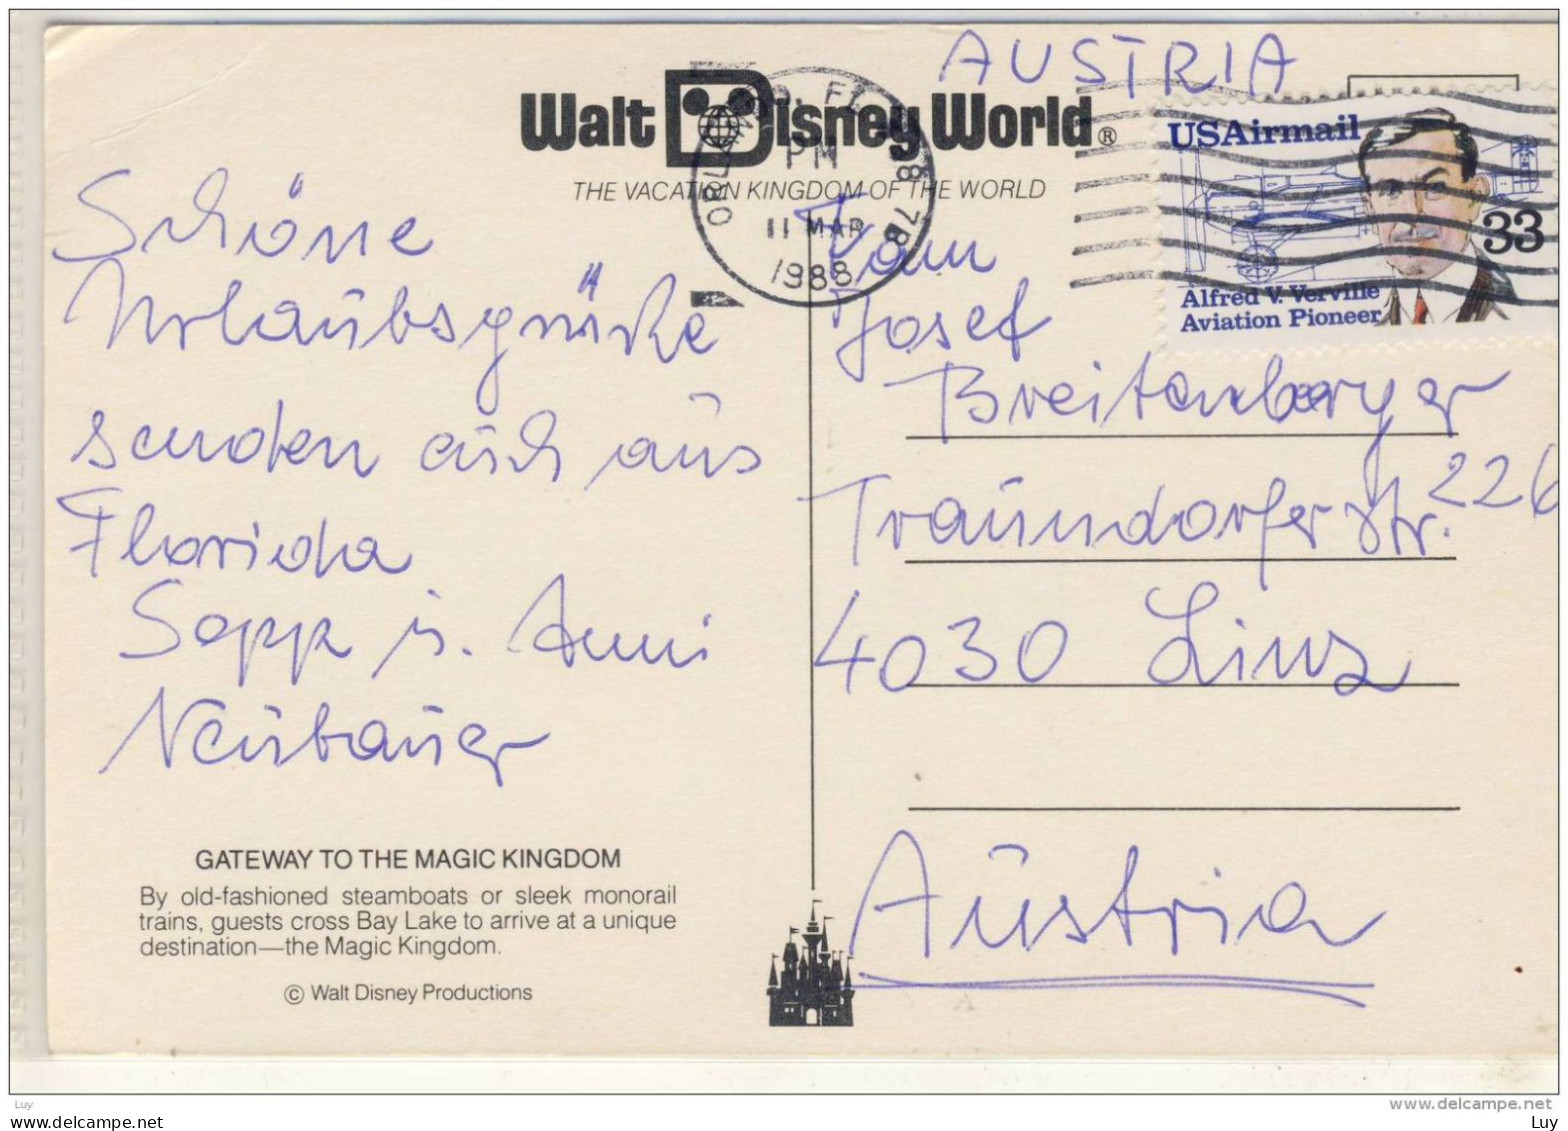 AUSTRIA
Walt Disney World ®
THE VACATION KINGDOM OF THE WORLD
ORLANDO, FL
PM
11 MAR
1988
USAirmail
33
Alfred V. Verville
Aviation Pioneer
Schöne
Urlaubsgrüße
senden euch aus
Florida
Sepp u. Anni
Neubauer
Fam
Josef
Breitenberger
Traundorferstr. 226
4030 Linz
Austria
GATEWAY TO THE MAGIC KINGDOM
By old-fashioned steamboats or sleek monorail
trains, guests cross Bay Lake to arrive at a unique
destination—the Magic Kingdom.
© Walt Disney Productions
Luy
www.delcampe.net
www.delcampe.net
Luy